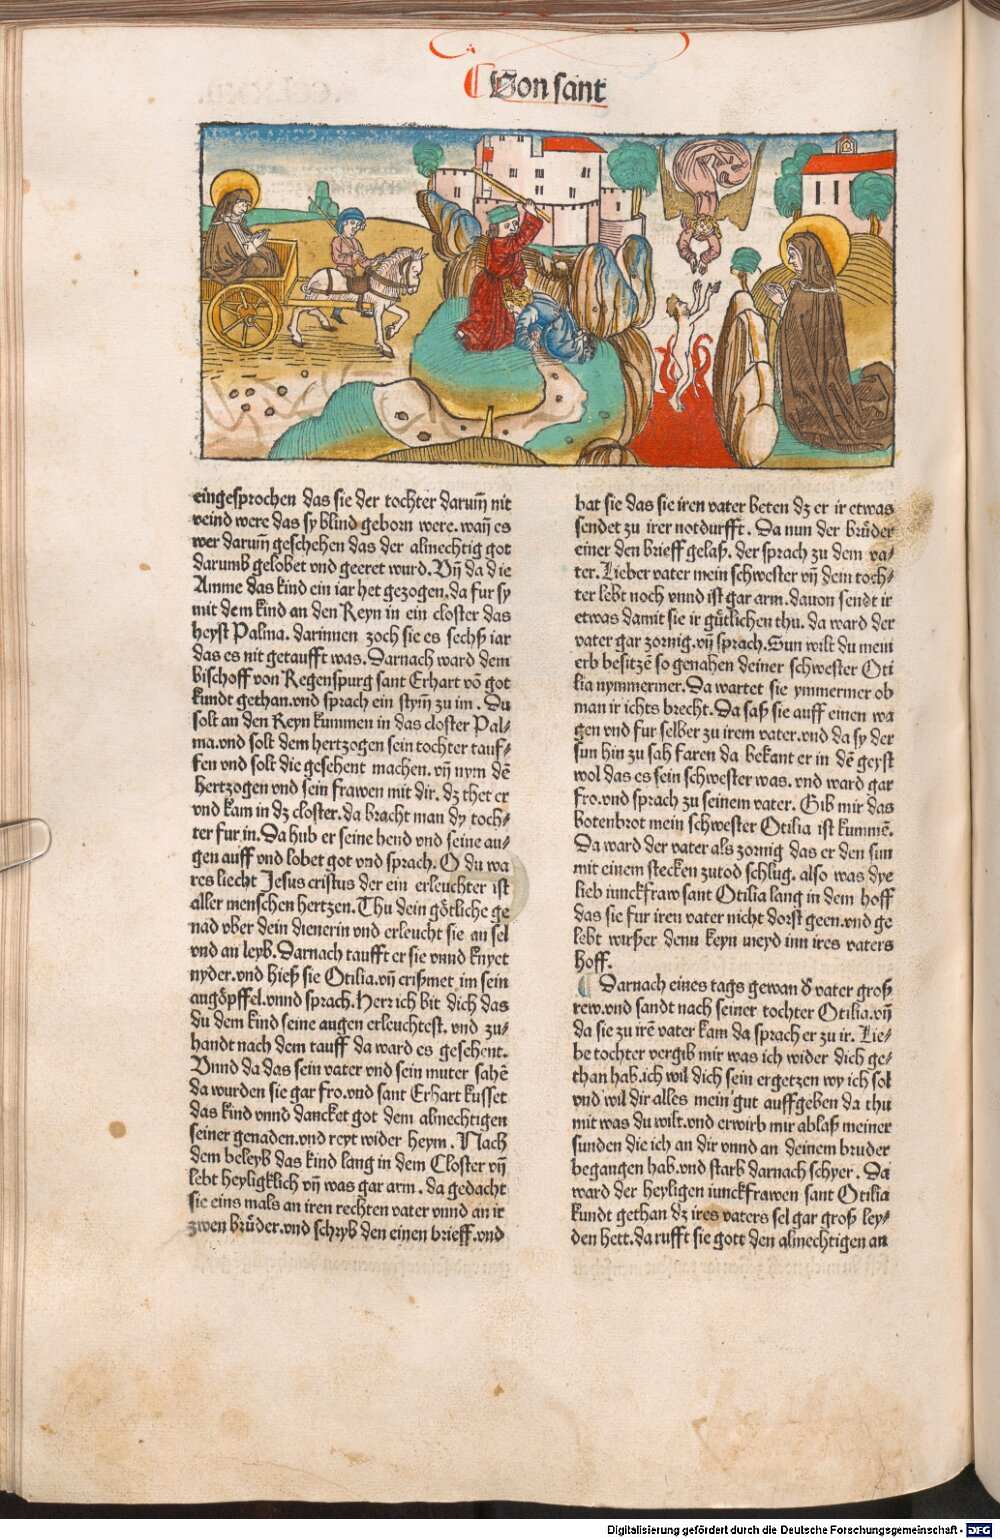 Von sant
eingesprochen das sie der tochter darum̄ nit
veind were das sy blind geborn were. wan̄ es
wer darum̄ geschehen das der almechtig got
darumb gelobet vnd geeret wurd. Vn̄ da die
Amme das kind ein iar het gezogen. da fur sy
mit dem kind an den Reyn in ein closter das
heyst Palma. darinnen zoch sie es sechß iar
das es nit getaufft was. Darnach ward dem
bischoff von Regenspurg sant Erhart vō got
kundt gethan. vnd sprach ein stym̄ zu im. Du
solt an den Reyn kummen in das closter Pal⸗
ma. vnd solt dem hertzogen sein tochter tauf⸗
fen vnd solt die gesehent machen. vn̄ nym dē
hertzogen vnd sein frawen mit dir. dz thet er
vnd kam in dz closter. da bracht man dy toch⸗
ter fur in. Da hub er seine hend vnd seine au⸗
gen auff vnd lobet got vnd sprach. O du wa
res liecht Jesus cristus der ein erleuchter ist
aller menschen hertzen. Thu dein götliche ge
nad vber dein dienerin vnd erleucht sie an sel
vnd an leyb. Darnach taufft er sie vnnd knyet
nyder. vnd hieß sie Otilia. vn̄ crißmet im sein
augöpffel. vnnd sprach. Herr ich bit dich das
du dem kind seine augen erleuchtest. vnd zu⸗
handt nach dem tauff da ward es gesehent.
Vnnd da das sein vater vnd sein muter sahē
da wurden sie gar fro. vnd sant Erhart kusset
das kind vnnd dancket got dem almechtigen
seiner genaden. vnd reyt wider heym. Nach
dem beleyb das kind lang in dem Closter vn̄
lebt heyligklich vn̄ was gar arm. da gedacht
sie eins mals an iren rechten vater vnnd an ir
zwen brüder. vnd schryb den einen brieff. vnd
bat sie das sie iren vater beten dz er ir etwas
sendet zu irer notdurfft. Da nun der brüder
einer den brieff gelaß. der sprach zu dem va⸗
ter. Lieber vater mein schwester vn̄ dem toch⸗
ter lebt noch vnnd ist gar arm. dauon sendt ir
etwas damit sie ir gütlichen thu. da ward der
vater gar zornig. vn̄ sprach. Sun wilt du mein
erb besitzē so genahen deiner schwester Oti
lia nymmermer. Da wartet sie ymmermer ob
man ir ichts brecht. Da saß sie auff einen wa
gen vnd fur selber zu irem vater. vnd da sy der
sun hin zu sah faren da bekant er in dē geyst
wol das es sein schwester was. vnd ward gar
fro. vnd sprach zu seinem vater. Gib mir das
botenbrot mein schwester Otilia ist kummē.
Da ward der vater als zornig das er den sun
mit einem stecken zutod schlug. also was dye
lieb iunckfraw sant Otilia lang in dem hoff
das sie fur iren vater nicht dorst geen. vnd ge
lebt wirßer denn keyn meyd inn ires vaters
hoff.
Darnach eines tags gewan d̄ vater groß
rew. vnd sandt nach seiner tochter Otilia. vn̄
da sie zu irē vater kam da sprach er zu ir. Lie⸗
be tochter vergib mir was ich wider dich ge⸗
than hab. ich wil dich sein ergetzen wy ich sol
vnd wil dir alles mein gut auffgeben da thu
mit was du wilt. vnd erwirb mir ablaß meiner
sunden die ich an dir vnnd an deinem bruder
begangen hab. vnd starb darnach schyer. Da
ward der heyligen iunckfrawen sant Otilia
kundt gethan dz ires vaters sel gar groß ley⸗
den hett. da rufft sie gott den almechtigen an
Digitalisierung gefördert durch die Deutsche Forschungsgemeinschaft - DFG